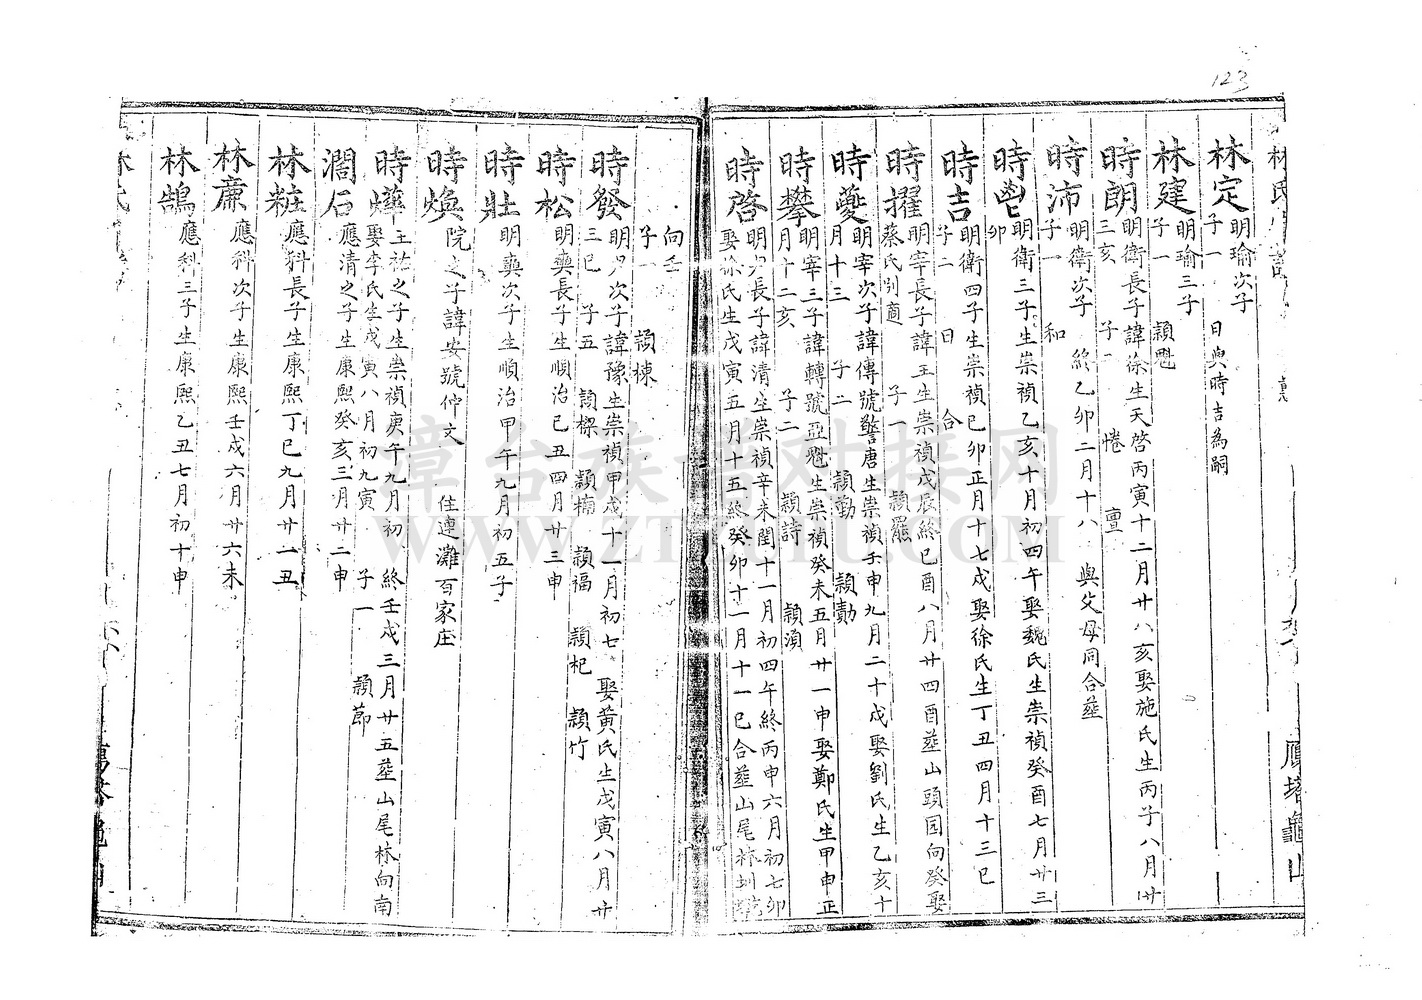 123
林氏
鴈塔龜山
林定 明瑜次子
子一 日與時吉為嗣
林建 明瑜三子
子一 穎魁
時朗 明衛長子諱徐生天啓丙寅十二月廿八亥娶施氏生丙子八月廿
三亥 子一 惓 亶
時沛 明衛次子 終乙卯二月十八 與父母同合葬
子一 和
時 明衛三子生崇禎乙亥十月初四午娶魏氏生崇禎癸酉七月廿三
卯
時吉 明衛四子生崇禎己卯正月十七戌娶徐氏生丁丑四月十三巳
子二 日 合
時擢 明宰長子諱玉生崇禎戊辰終己酉八月廿四酉葬山頭园向癸娶
蔡氏別適 子一 穎羆
時夔 明宰次子諱傳號警唐生崇禎壬申九月二十戌娶劉氏生乙亥十
月十三 子二 穎勤 穎勣
時攀 明宰三子諱轉號亞魁生崇禎癸未五月廿一申娶鄭氏生甲申正
月十二亥 子二 穎詩 穎湏
時啓 明尹長子諱清生崇禎辛未閏十一月初四午終丙申六月初七卯
娶徐氏生戊寅五月十五終癸卯十一月十一巳合葬山尾林圳
向壬
子一 穎棟
時發 明尹次子諱豫生崇禎甲戌十一月初七 娶黃氏生戊寅八月廿
三巳 子五 穎樑 穎楠 穎福 穎杞 穎竹
時松 明爽長子生順治己丑四月廿三申
時壯 明爽次子生順治甲午九月初五子
時煥 院之子諱安號仲文 住連灘百家庄
時燁 王祐之子生崇禎庚午九月初 終壬戌三月廿五葬山尾林向南
娶李氏生戊寅八月初九寅 子一 穎節
濶石 應清之子生康熙癸亥三月廿二申
林粧 應科長子生康熙丁巳九月廿一丑
林㢘 應科次子生康熙壬戌六月廿六未
林鵠 應科三子生康熙乙丑七月初十申
林氏
鴈塔龜山
漳台族谱对接网